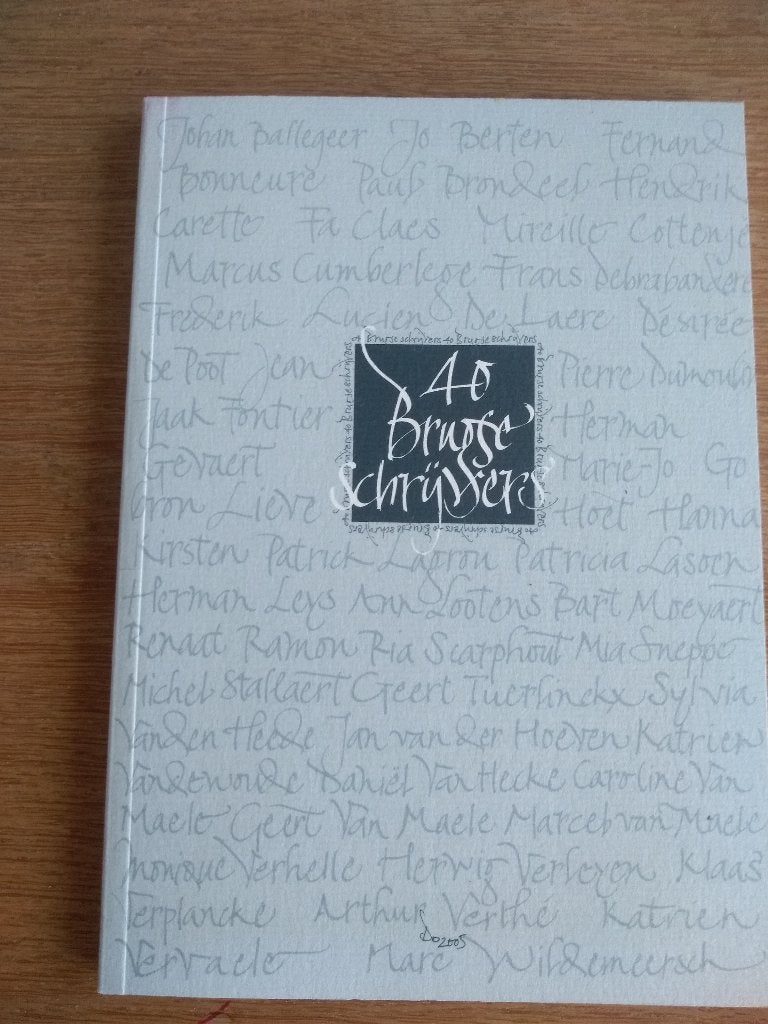 Johan Ballegeer Jo Berten Fernand
Bonneure Paul Brondeel Hendrik
Carette Fa Claes Mireille Cottenjé
Marcus Cumberlege Frans Debrabandere
Frederik Lucien De Laere Désirée
40 Brugse schrijvers 40 Brugse schrijvers
De Poot Jean Pierre Dumoulin
Jaak Fontier Herman
Gevaert Marie-Jo Go
dron Lieve Hoet Hanna
40
Brugse
schrijvers
40 Brugse schrijvers 40 Brugse schrijvers
Kirsten Patrick Lagrou Patricia Lasoen
Herman Leys Ann Lootens Bart Moeyaert
Renaat Ramon Ria Scarphout Mia Sneppe
Michel Stallaert Geert Tuerlinckx Sylvia
Vanden Heede Jan van der Hoeven Katrien
Vandewoude Daniël Van Hecke Caroline Van
Maele Geert Van Maele Marcel van Maele
Monique Verhelle Herwig Verleyen Klaas
Verplancke Arthur Verthé Katrien
Vervaele Marc Wildemeersch
2005